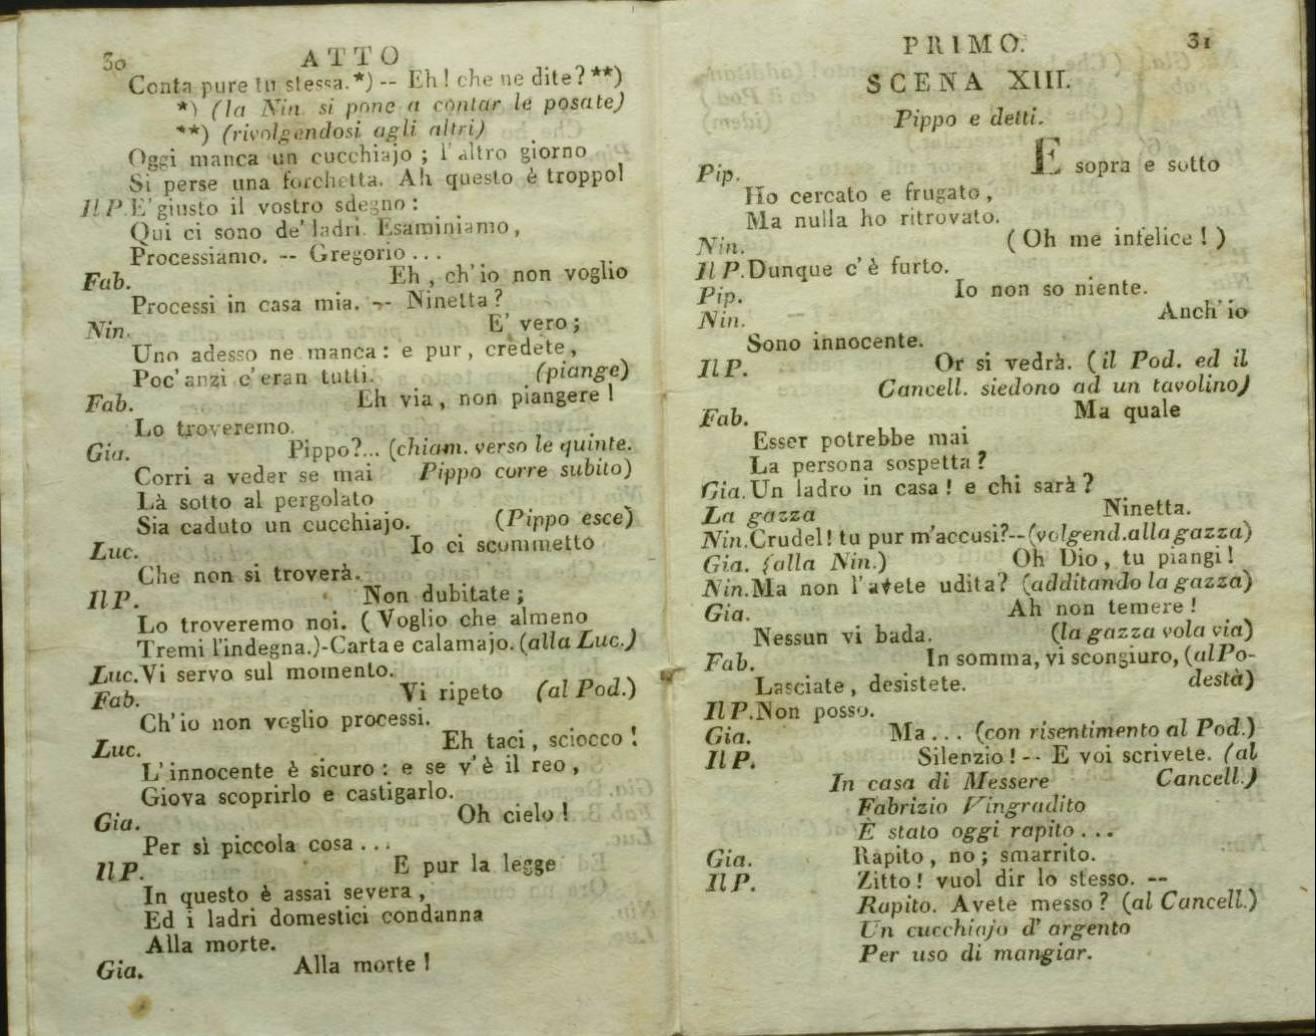 30 ATTO
Conta pure tu stessa.*) -- Eh! che ne dite?**)
*) (la Nin. si pone a contar le posate)
**) (rivolgendosi agli altri)
Oggi manca un cucchiajo; l'altro giorno
Si perse una forchetta. Ah questo è troppo!
Il P. E' giusto il vostro sdegno:
Qui ci sono de' ladri. Esaminiamo,
Processiamo. -- Gregorio...
Fab. Eh, ch'io non voglio
Processi in casa mia. -- Ninetta?
Nin. E' vero;
Uno adesso ne manca: e pur, credete,
Poc'anzi c'eran tutti. (piange)
Fab. Eh via, non piangere!
Lo troveremo.
Gia. Pippo?... (chiam. verso le quinte.
Corri a veder se mai Pippo corre subito)
Là sotto al pergolato
Sia caduto un cucchiajo. (Pippo esce)
Luc. Io ci scommetto
Che non si troverà.
Il P. Non dubitate;
Lo troveremo noi. (Voglio che almeno
Tremi l'indegna.)-Carta e calamajo. (alla Luc.)
Luc. Vi servo sul momento.
Fab. Vi ripeto (al Pod.)
Ch'io non voglio processi.
Luc. Eh taci, sciocco!
L'innocente è sicuro: e se v'è il reo,
Giova scoprirlo e castigarlo.
Gia. Oh cielo!
Per sì piccola cosa...
Il P. E pur la legge
In questo è assai severa,
Ed i ladri domestici condanna
Alla morte.
Gia. Alla morte!
PRIMO. 31
SCENA XIII.
Pippo e detti.
Pip. E sopra e sotto
Ho cercato e frugato,
Ma nulla ho ritrovato.
Nin. (Oh me infelice!)
Il P. Dunque c'è furto.
Pip. Io non so niente.
Nin. Anch'io
Sono innocente.
Il P. Or si vedrà. (il Pod. ed il
Cancell. siedono ad un tavolino)
Fab. Ma quale
Esser potrebbe mai
La persona sospetta?
Gia. Un ladro in casa! e chi sarà?
La gazza Ninetta.
Nin. Crudel! tu pur m'accusi?--(volgend. alla gazza)
Gia. (alla Nin.) Oh Dio, tu piangi!
Nin. Ma non l'avete udita? (additando la gazza)
Gia. Ah non temere!
Nessun vi bada. (la gazza vola via)
Fab. In somma, vi scongiuro, (al Po-
Lasciate, desistete. destà)
Il P. Non posso.
Gia. Ma... (con risentimento al Pod.)
Il P. Silenzio! -- E voi scrivete. (al
In casa di Messere Cancell.)
Fabrizio Vingradito
È stato oggi rapito...
Gia. Rapito, no; smarrito.
Il P. Zitto! vuol dir lo stesso. --
Rapito. Avete messo? (al Cancell.)
Un cucchiajo d'argento
Per uso di mangiar.